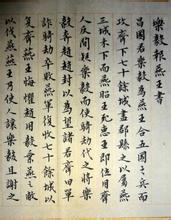 樂毅報燕王書
昌國君樂毅為燕昭王合五國之兵而
攻齊下七十餘城盡郡縣之以屬燕
三城未下而燕昭王死惠王即位用齊
人反間疑樂毅而使騎劫代之將樂
毅奔趙趙封以為望諸君齊田單
詐騎劫卒敗燕軍復收七十餘城以
復齊燕王悔懼趙用樂毅乘燕之敝
以伐燕燕王乃使人讓樂毅且謝之